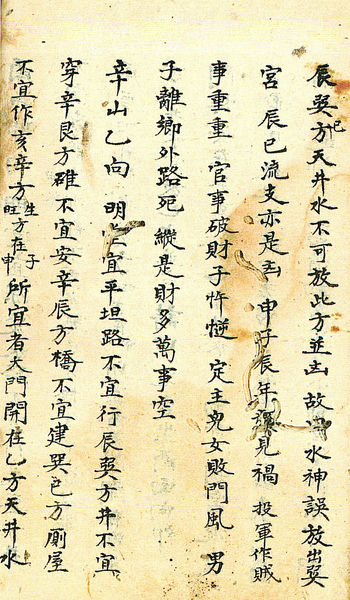 辰巽巳方天井水不可放此方並凶 故曰水神誤放出巽
宮 辰巳流支亦是凶 申子辰年須見禍 投軍作賊
事重重 官事破財子忤逆 定主兒女敗門風 男
子離鄉外路死 縱是財多萬事空
辛山乙向 明堂宜平坦路不宜行辰巽方井不宜
穿辛艮方碓不宜安辛辰方橋不宜建巽巳方厠屋
不宜作亥辛方 生方在子 旺方在申 所宜者大門開在乙方天井水